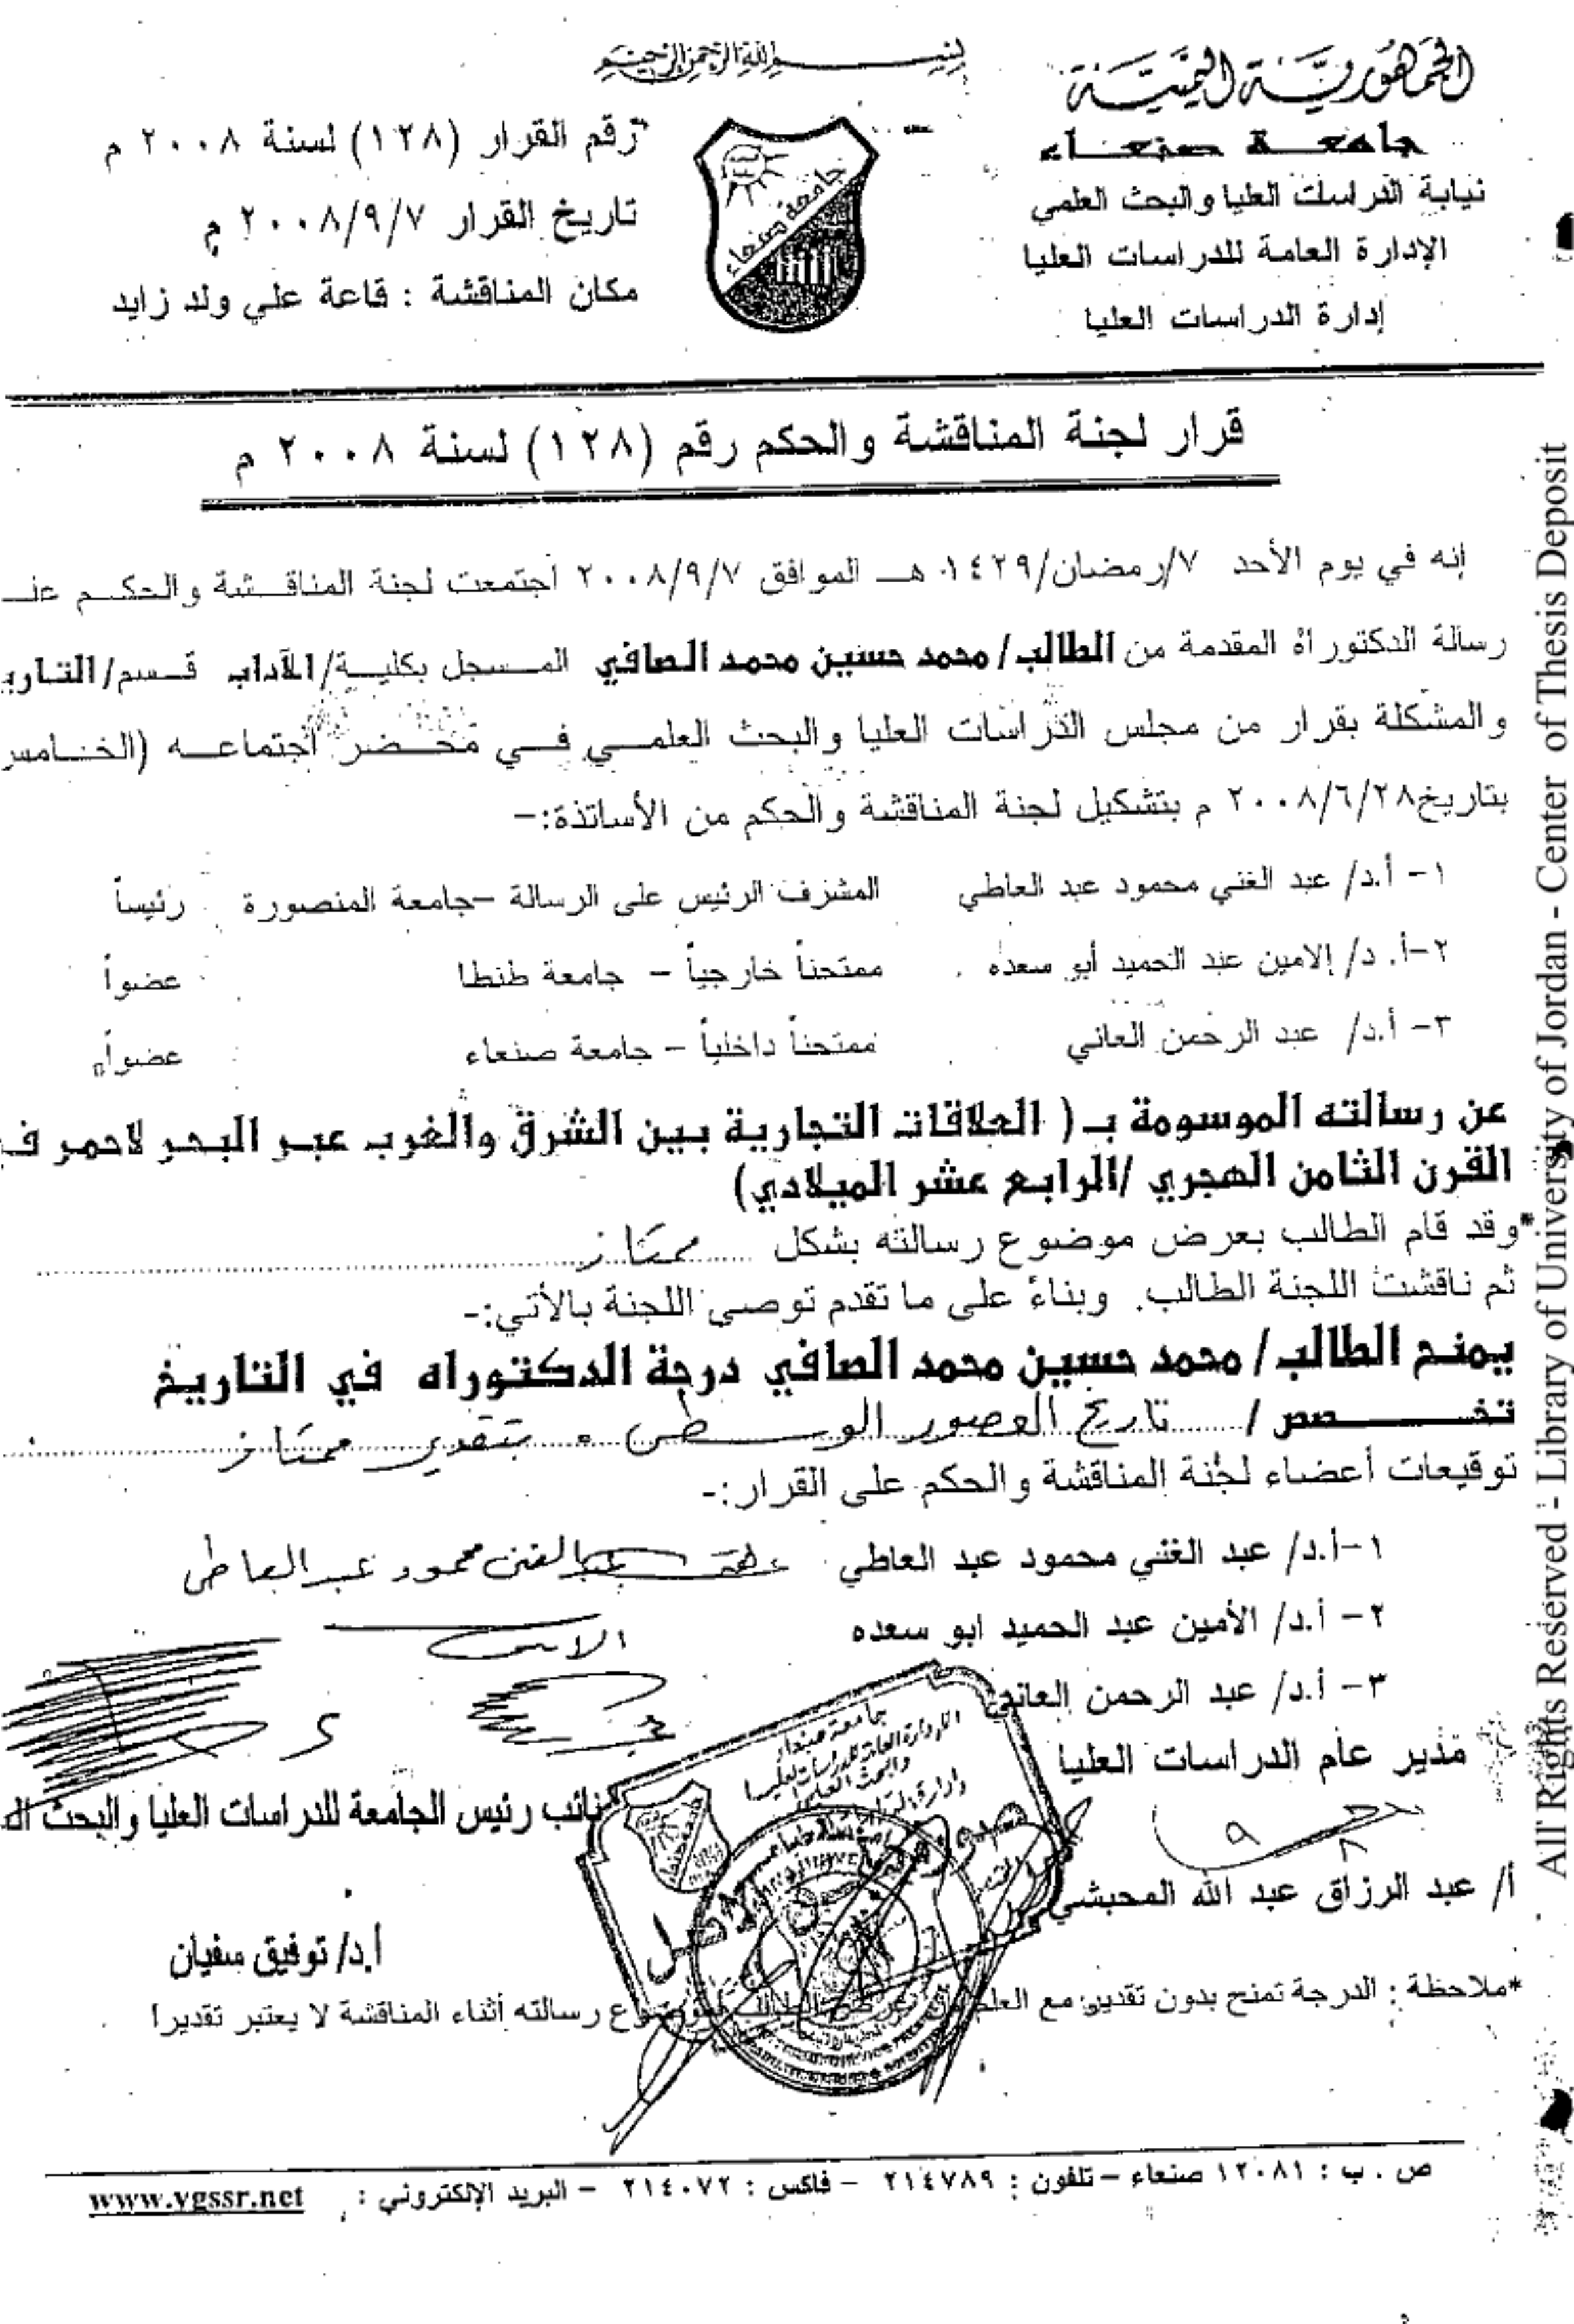 بسم الله الرحمن الرحيم
الجمهورية اليمنية
جامعة صنعاء
نيابة الدراسات العليا والبحث العلمي
الإدارة العامة للدراسات العليا
إدارة الدراسات العليا
جامعة صنعاء
رقم القرار (١٢٨) لسنة ٢٠٠٨ م
تاريخ القرار ٢٠٠٨/٩/٧ م
مكان المناقشة : قاعة علي ولد زايد
قرار لجنة المناقشة والحكم رقم (١٢٨) لسنة ٢٠٠٨ م
إنه في يوم الأحد ٧/رمضان/١٤٢٩ هـ الموافق ٢٠٠٨/٩/٧ اجتمعت لجنة المناقشة والحكم
رسالة الدكتوراه المقدمة من الطالب/ محمد حسين محمد الصافي المسجل بكلية/الآداب قسم/
والمشكلة بقرار من مجلس الدراسات العليا والبحث العلمي في محضر اجتماعه (الخامس
بتاريخ٢٠٠٨/٦/٢٨ م بتشكيل لجنة المناقشة والحكم من الأساتذة:-
١- أ.د/ عبد الغني محمود عبد العاطي المشرف الرئيس على الرسالة -جامعة المنصورة رئيساً
٢-أ. د/ الامين عبد الحميد أبو سعده ممتحناً خارجياً - جامعة طنطا عضواً
٣- أ.د/ عبد الرحمن العاني ممتحناً داخلياً - جامعة صنعاء عضواً
عن رسالته الموسومة بـ ( العلاقات التجارية بين الشرق والغرب عبر البحر لاحمر
القرن الثامن الهجري /الرابع عشر الميلادي)
*وقد قام الطالب بعرض موضوع رسالته بشكل ..... ممتاز .....
ثم ناقشت اللجنة الطالب. وبناءً على ما تقدم توصي اللجنة بالأتي:-
يمنح الطالب/ محمد حسين محمد الصافي درجة الدكتوراه في التاريخ
تخصص /..... تاريخ العصور الوسطى . بتقدير ممتاز .....
توقيعات أعضاء لجنة المناقشة والحكم على القرار:-
١-أ.د/ عبد الغني محمود عبد العاطي عبد الغنى محمود عبد العاطى
٢- أ.د/ الأمين عبد الحميد ابو سعده
٣- أ.د/ عبد الرحمن العاني
مدير عام الدراسات العليا
نائب رئيس الجامعة للدراسات العليا والبحث
جامعة صنعاء
الإدارة العامة للدراسات العليا
والبحث العلمي
أ/ عبد الرزاق عبد الله المحبشي
أ.د/ توفيق سفيان
*ملاحظة : الدرجة تمنح بدون تقدير مع رسالته أثناء المناقشة لا يعتبر تقديرا
ص . ب : ١٢٠٨١ صنعاء - تلفون : ٢١٤٧٨٩ - فاكس : ٢١٤٠٧٢ - البريد الإلكتروني : www.ygssr.net
All Rights Reserved - Library of University of Jordan - Center of Thesis Deposit